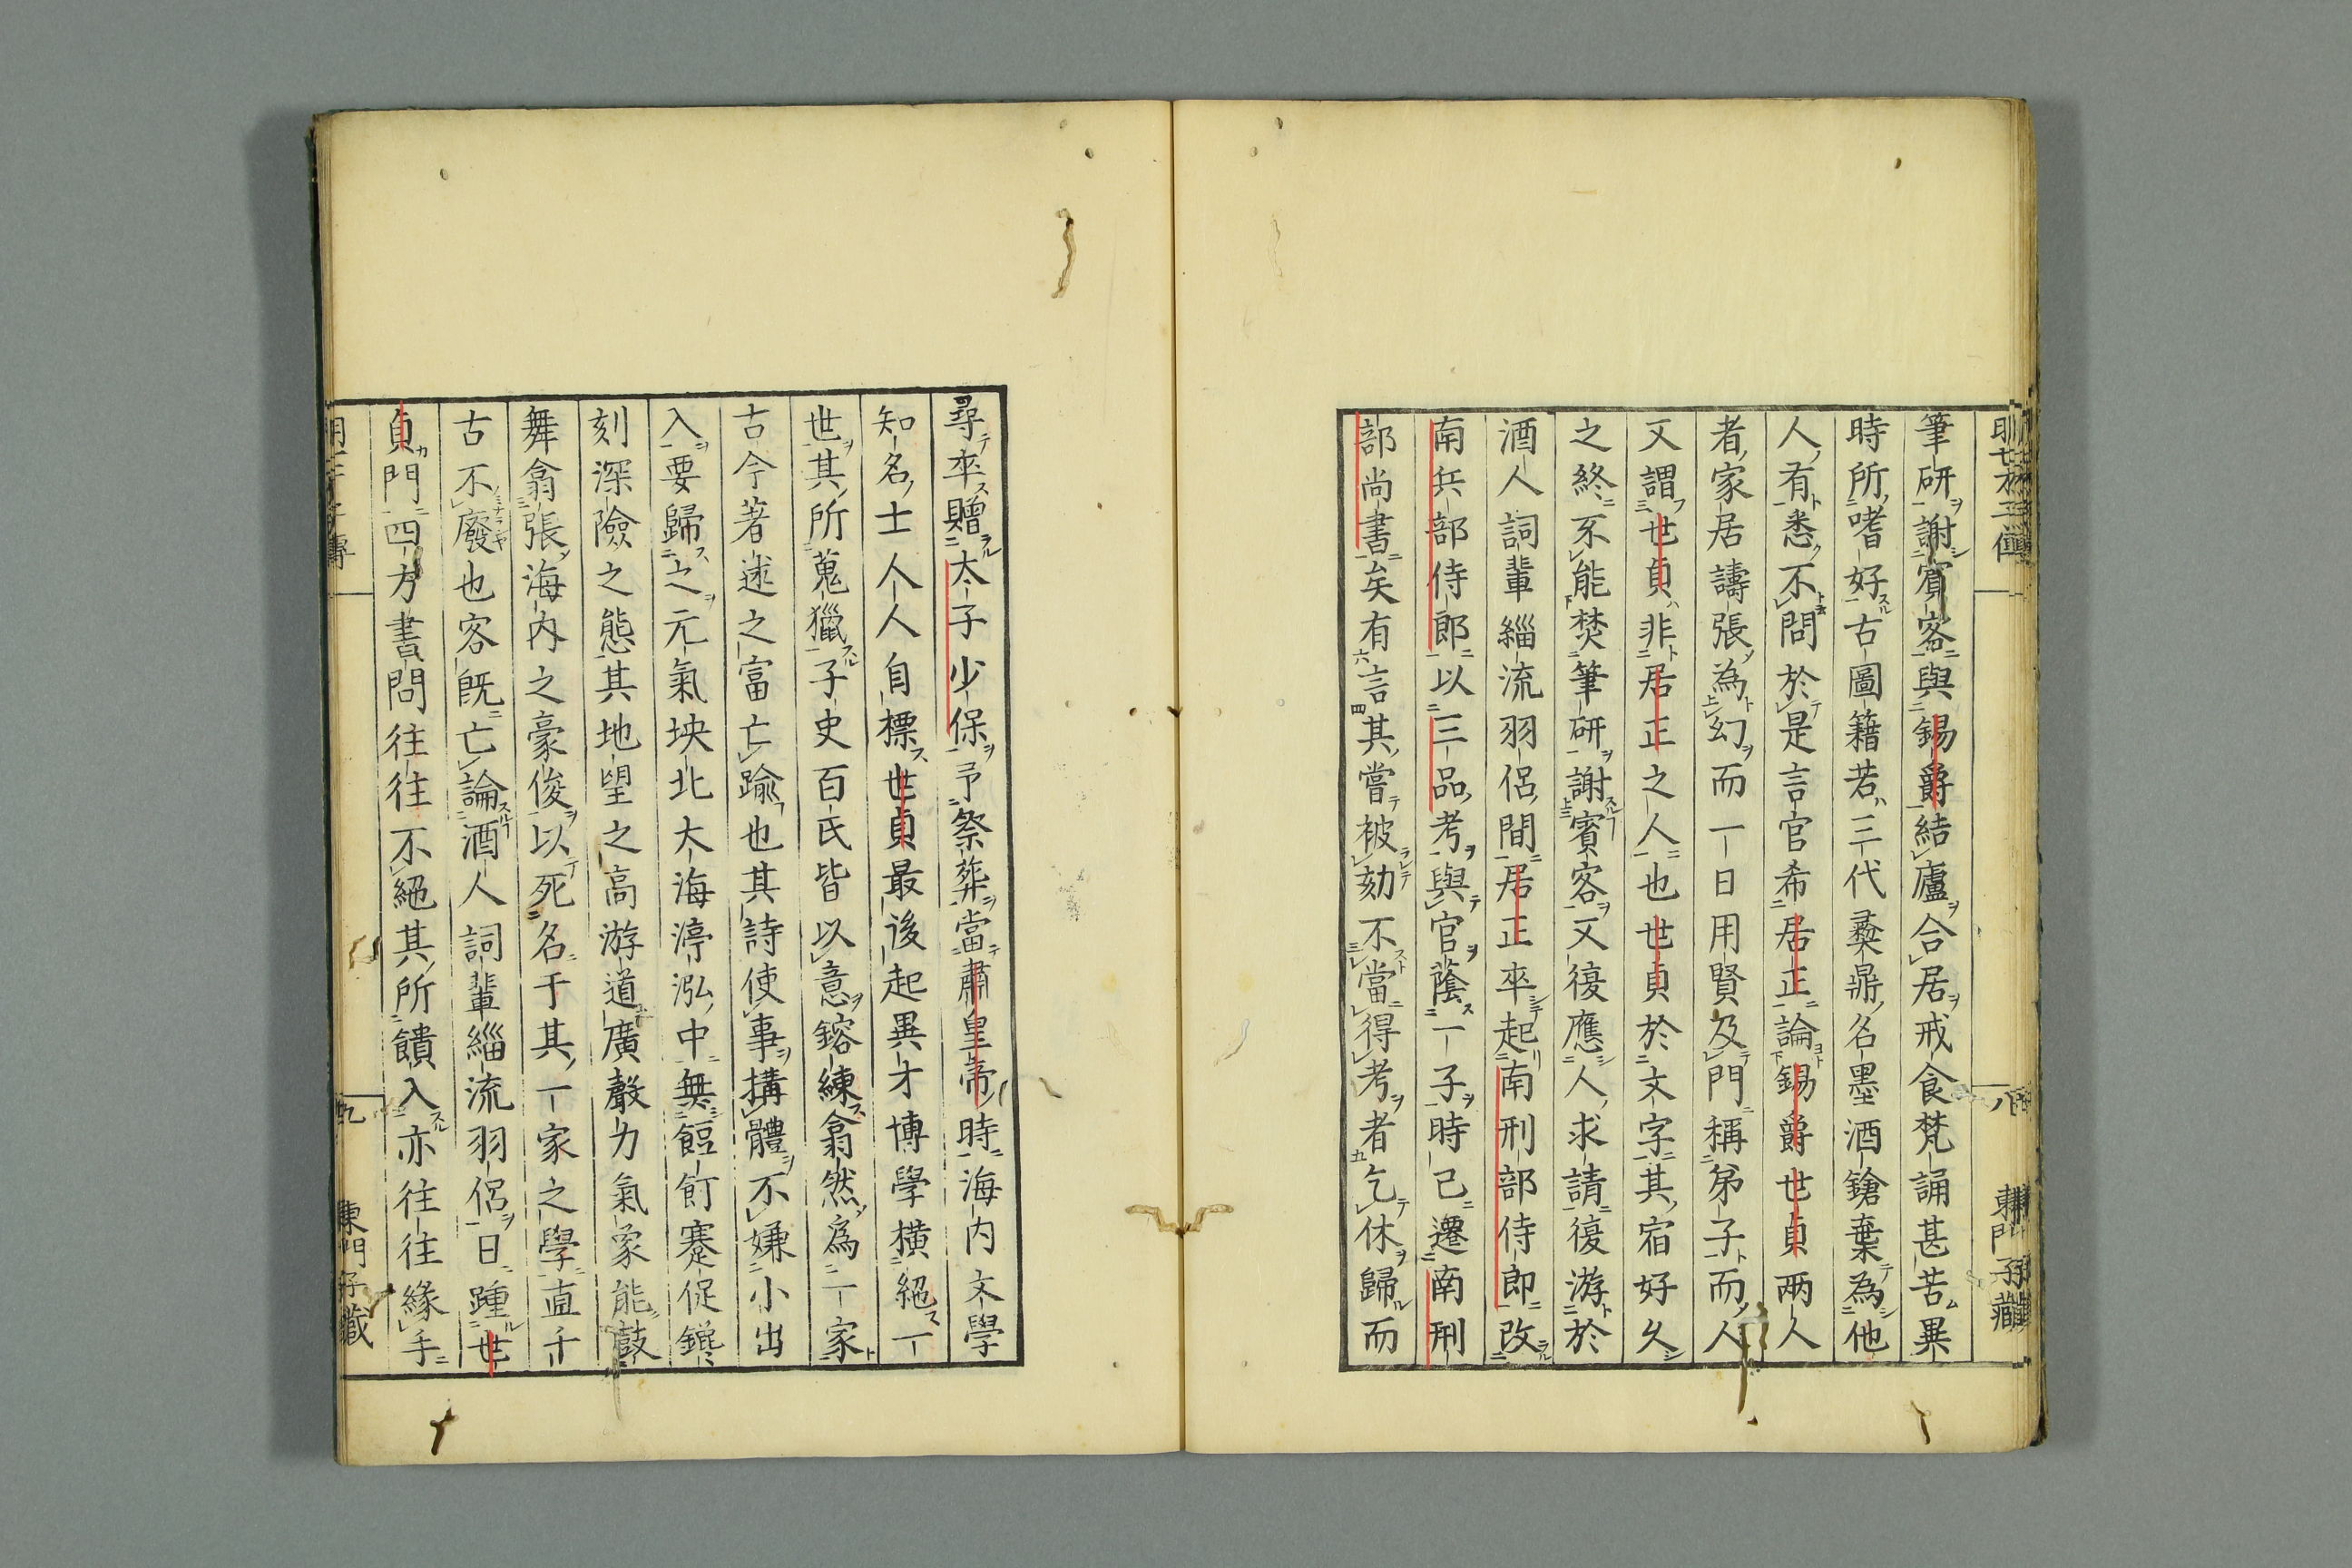 筆研謝賓客與錫爵結廬合居戒食梵誦甚苦異
時所嗜好古圖籍若三代彝鼎名墨酒鎗棄為他
人有悉不問於是言官希居正論錫爵世貞兩人
者家居譸張為幻而一日用賢及門稱弟子而人
又謂世貞非居正之人也世貞於文字其宿好久
之終不能焚筆研謝賓客又復應人求請復游於
酒人詞輩緇流羽侶間居正卒起南刑部侍郎改
南兵部侍郎以三品考與官蔭一子時已遷南刑
部尚書矣有言其嘗被劾不當得考者乞休歸而
八
東門子藏
尋卒贈太子少保予祭葬當肅皇帝時海内文學
知名士人人自標世貞最後起異才博學橫絕一
世其所蒐獵子史百氏皆以意鎔練翕然為一家
古今著述之富亡踰也其詩使事搆體不嫌小出
入要歸之元氣坱北大海渟泓中無餖飣蹇促鑱
刻深險之態其地望之高游道廣聲力氣象能鼓
舞翕張海内之豪俊以死名于其一家之學直千
古不廢也客旣亡論酒人詞輩緇流羽侶日踵世
貞門四方書問往往不絕其所饋入亦往往緣手
九
東門子藏